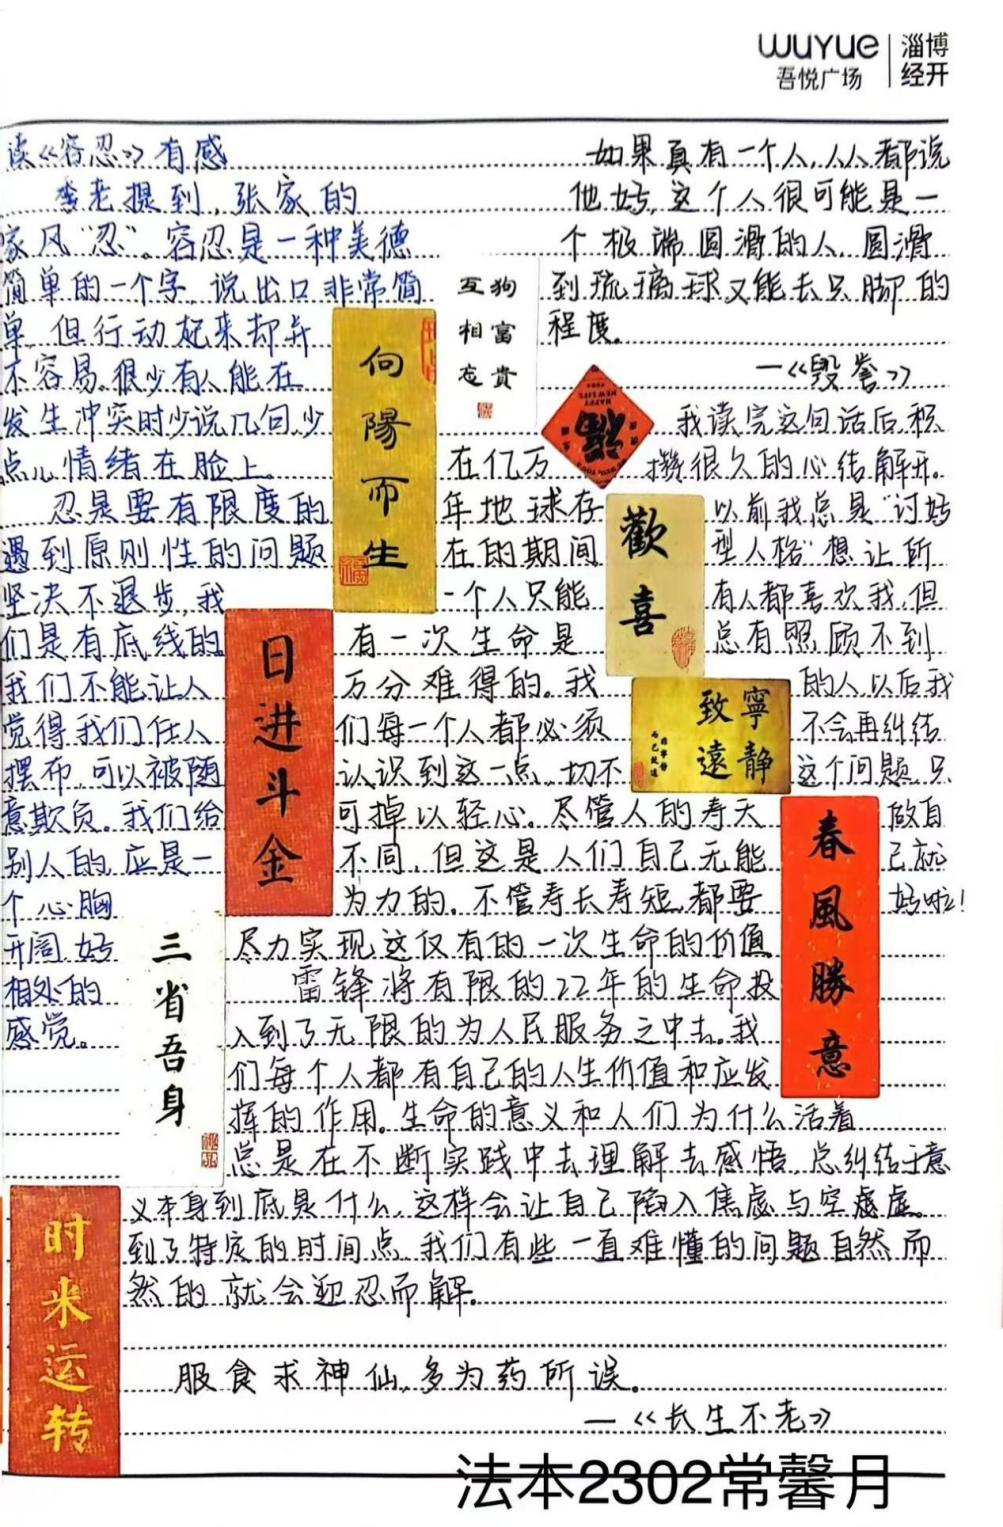 wuyue
吾悦广场
淄博
经开
读《容忍》有感
李老提到,张家的
家风“忍”。容忍是一种美德
简单的一个字,说出口非常简
单,但行动起来却并
不容易。很少有人能在
发生冲突时少说几句少
点儿情绪在脸上。
忍是要有限度的
遇到原则性的问题
坚决不退步,我
们是有底线的
我们不能让人
觉得我们任人
摆布,可以被随
意欺负。我们给
别人的,应是一
个心胸
开阔,好
相处的
感觉。
向陽而生
日进斗金
三省吾身
时来运转
狗富貴
互相忘
在亿万
年地球存
在的期间
一个人只能
有一次生命是
万分难得的。我
们每一个人都必须
认识到这一点,切不
可掉以轻心。尽管人的寿夭
不同,但这是人们自己无能
为力的。不管寿长寿短,都要
尽力实现这仅有的一次生命的价值
雷锋将有限的22年的生命投
入到了无限的为人民服务之中去。我
们每个人都有自己的人生价值和应发
挥的作用。生命的意义和人们为什么活着
总是在不断实践中去理解去感悟,总纠结于意
义本身到底是什么,这样会让自己陷入焦虑与空虚。
到了特定的时间点,我们有些一直难懂的问题自然而
然的就会迎忍而解。
服食求神仙,多为药所误。
—《长生不老》
如果真有一个人,人人都说
他好,这个人很可能是一
个极端圆滑的人,圆滑
到琉璃球又能去只脚的
程度。
—《毁誉》
我读完这句话后,积
攒很久的心结解开。
以前我总是“讨好
型人格”想让所
有人都喜欢我,但
总有照顾不到
的人,以后我
不会再纠结
这个问题,只
做自
己就
好啦!
HAPPY
NEW LIFE
福
歡喜
寧静
致遠
春風勝意
法本2302常馨月